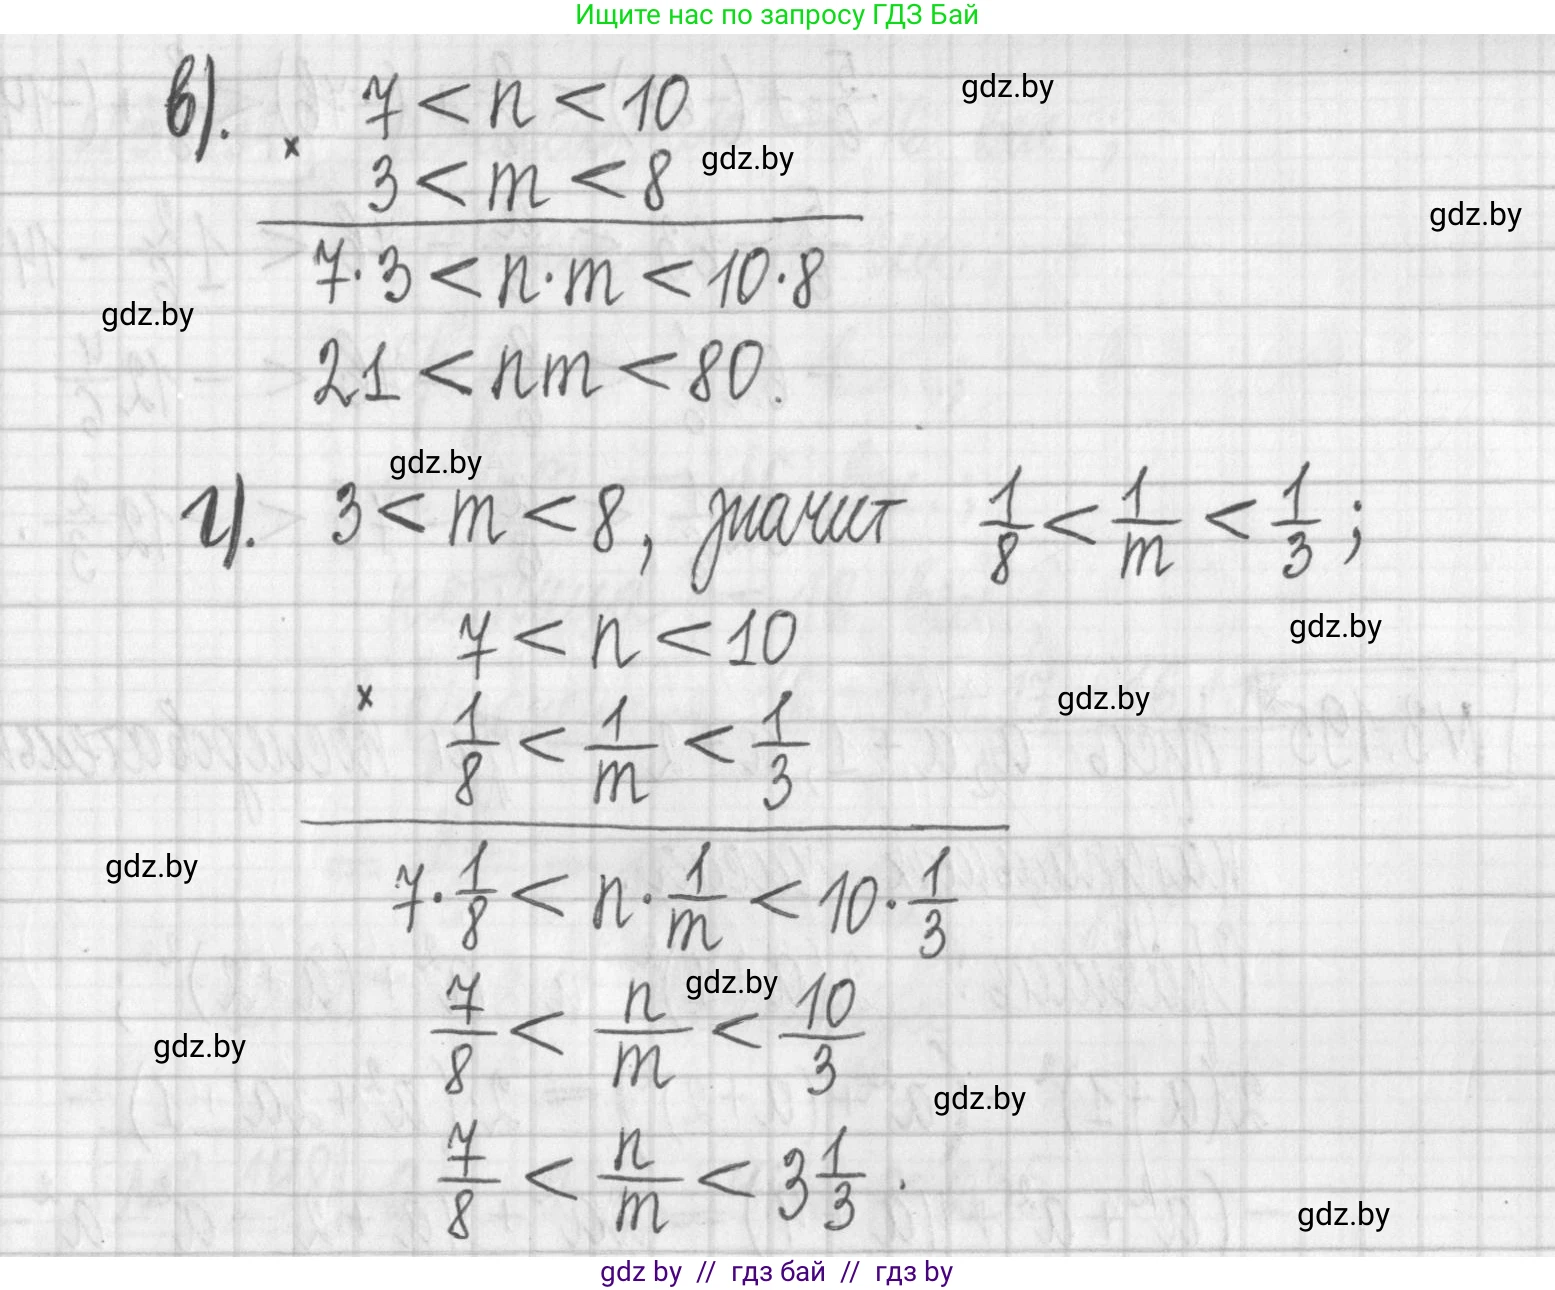 Ищите нас по запросу ГДЗ Бай
в). 7 < n < 10
gdz.by
× 3 < m < 8
gdz.by
gdz.by
7·3 < n·m < 10·8
gdz.by
21 < nm < 80.
gdz.by
г). 3 < m < 8, значит 1/8 < 1/m < 1/3 ;
7 < n < 10
gdz.by
× 1/8 < 1/m < 1/3
gdz.by
7·1/8 < n·1/m < 10·1/3
gdz.by
7/8 < n/m < 10/3
gdz.by
gdz.by
gdz.by
7/8 < n/m < 3 1/3 .
gdz.by
gdz by // гдз бай // гдз by